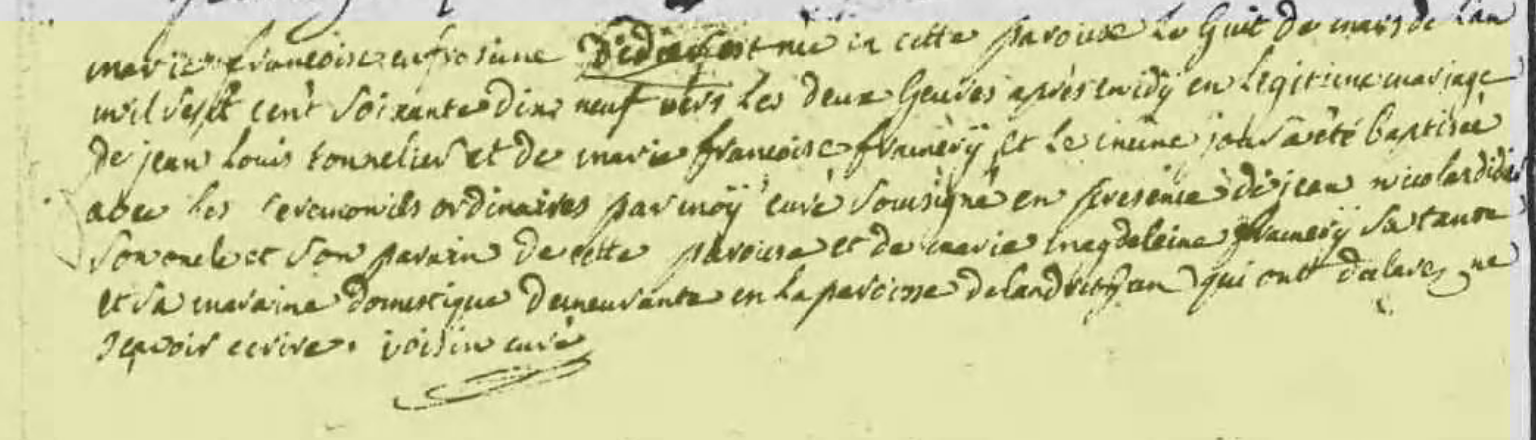 marie françoise enfrosine Didier est née en cette paroisse le huit de mars de l'an
mil sept cent soixante dix neuf vers les deux heures après midÿ en legitime mariage
de jean louis tonnelier et de marie françoise framerÿ et le même jour a été baptisée
avec les ceremonies ordinaires par moÿ curé soussigné en presence de jean nicolas didier
son oncle et son parain de cette paroisse et de marie magdeleine framerÿ sa tante
et sa maraine domestique demeurante en la paroisse de qui ont declarez ne
sçavoir ecrire. voisin curé